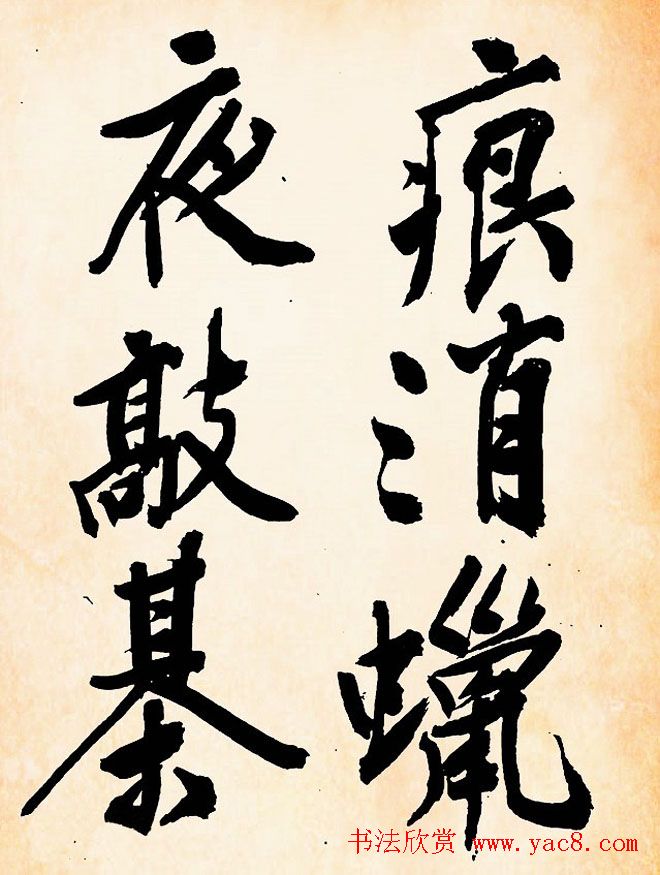 痕消蠟
夜敲棊
书法欣赏 www.yac8.com